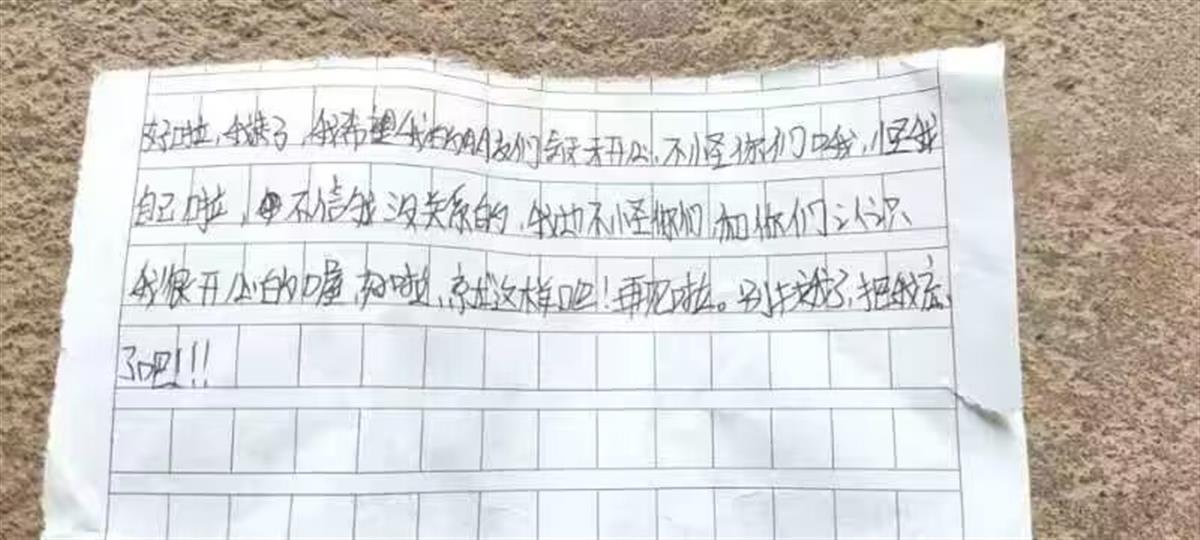 好啦，我走了，我希望我的朋友们天天开心，不怪你们哦，怪我
自己啦，不信我没关系的，我也不怪你们，和你们认识
我很开心的喔，好啦，就这样吧！再见啦。别找我了，把我忘
了吧!!!